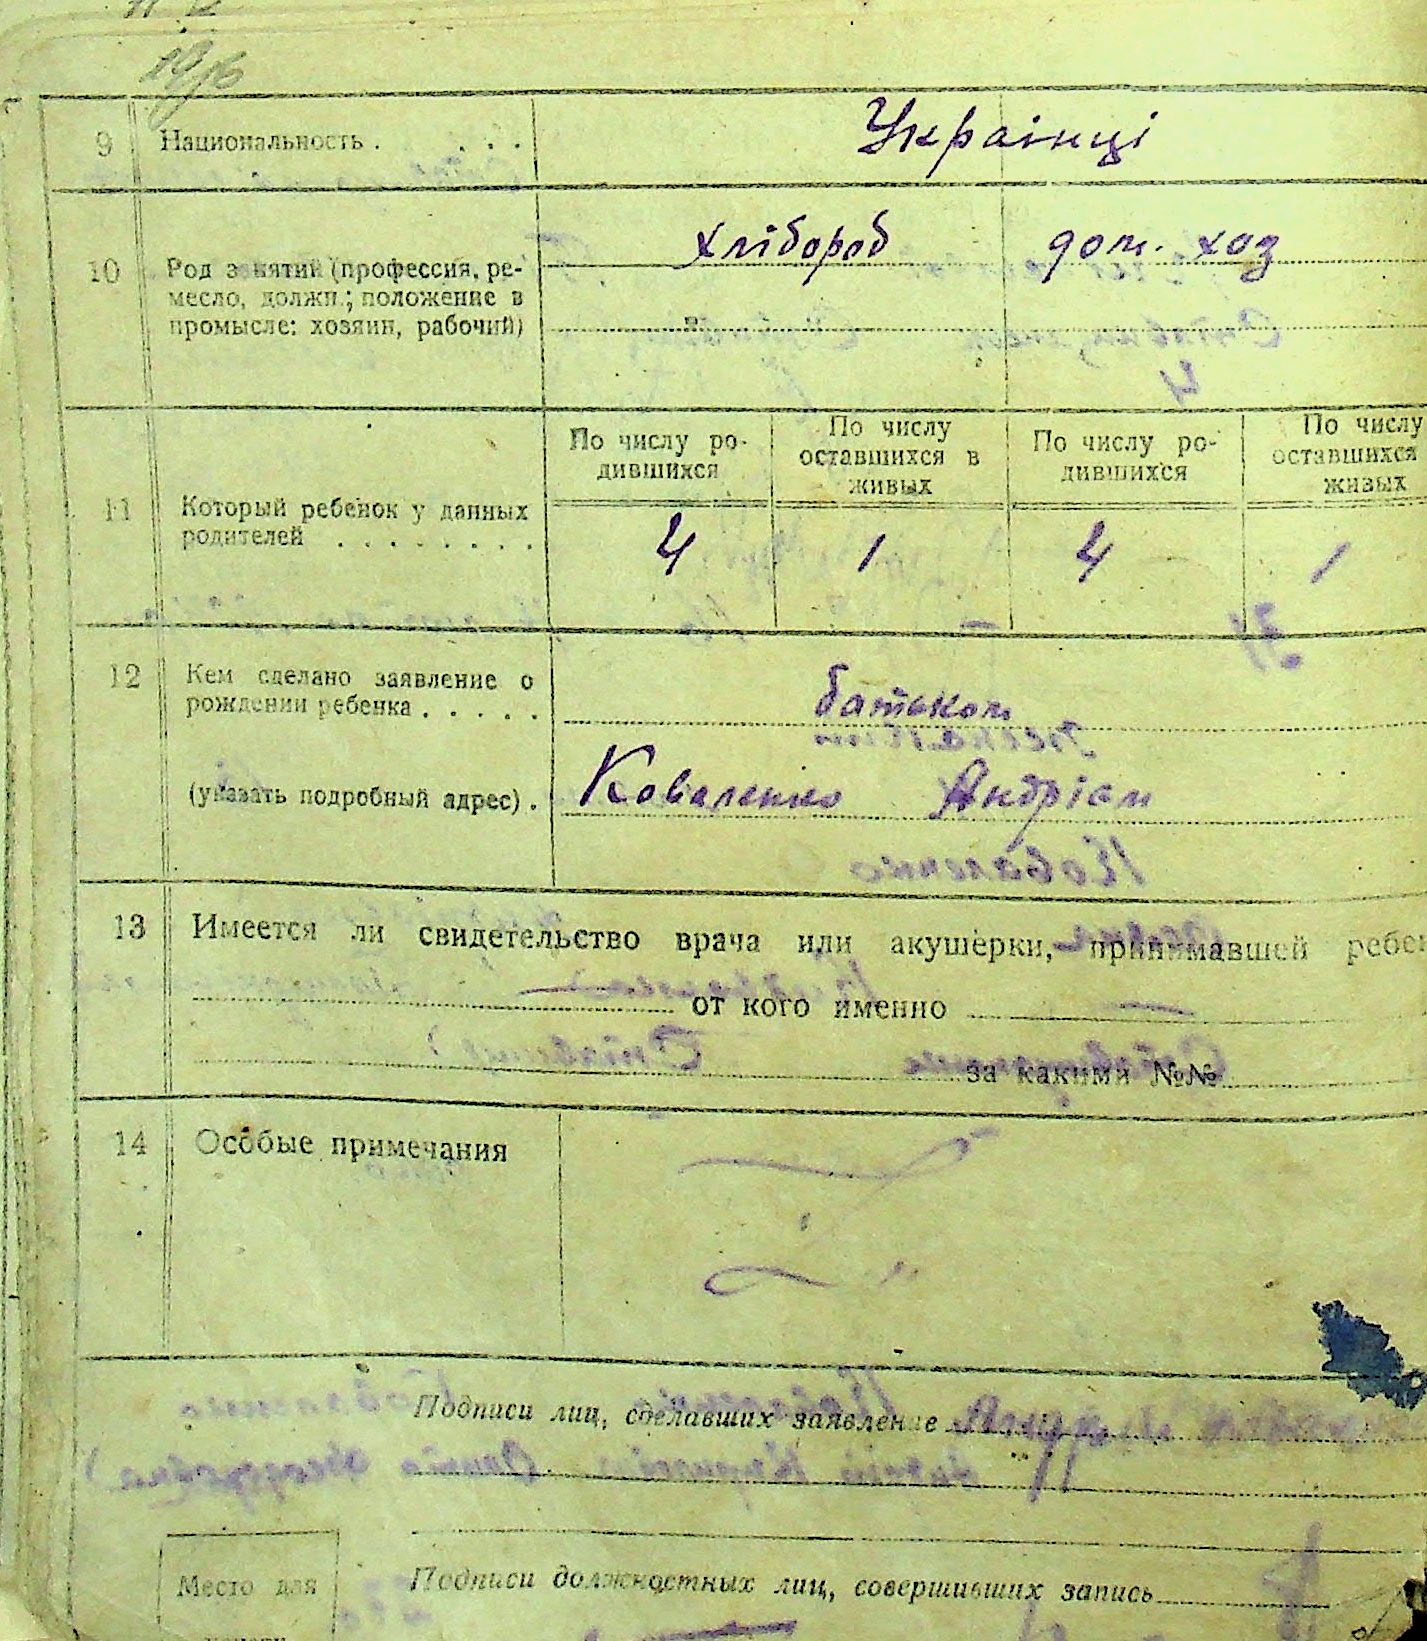 9 Национальность . . . . Украінці
10 Род занятий (профессия, ре-
месло, должн.; положение в
промысле: хозяин, рабочий)
хлібороб дом. хоз
11 Который ребенок у данных
родителей . . . . . . . .
По числу ро-
дившихся
По числу
оставшихся в
живых
По числу ро-
дившихся
По числу
оставшихся
живых
4 1 4 1
12 Кем сделано заявление о
рождении ребенка . . . . .
батьком
(указать подробный адрес) .
Коваленко Андріан
13 Имеется ли свидетельство врача или акушерки, принимавшей ребен
от кого именно
за какими №№
14 Особые примечания
Подписи лиц, сделавших заявление
Подписи должностных лиц, совершивших запись
Место для
печати